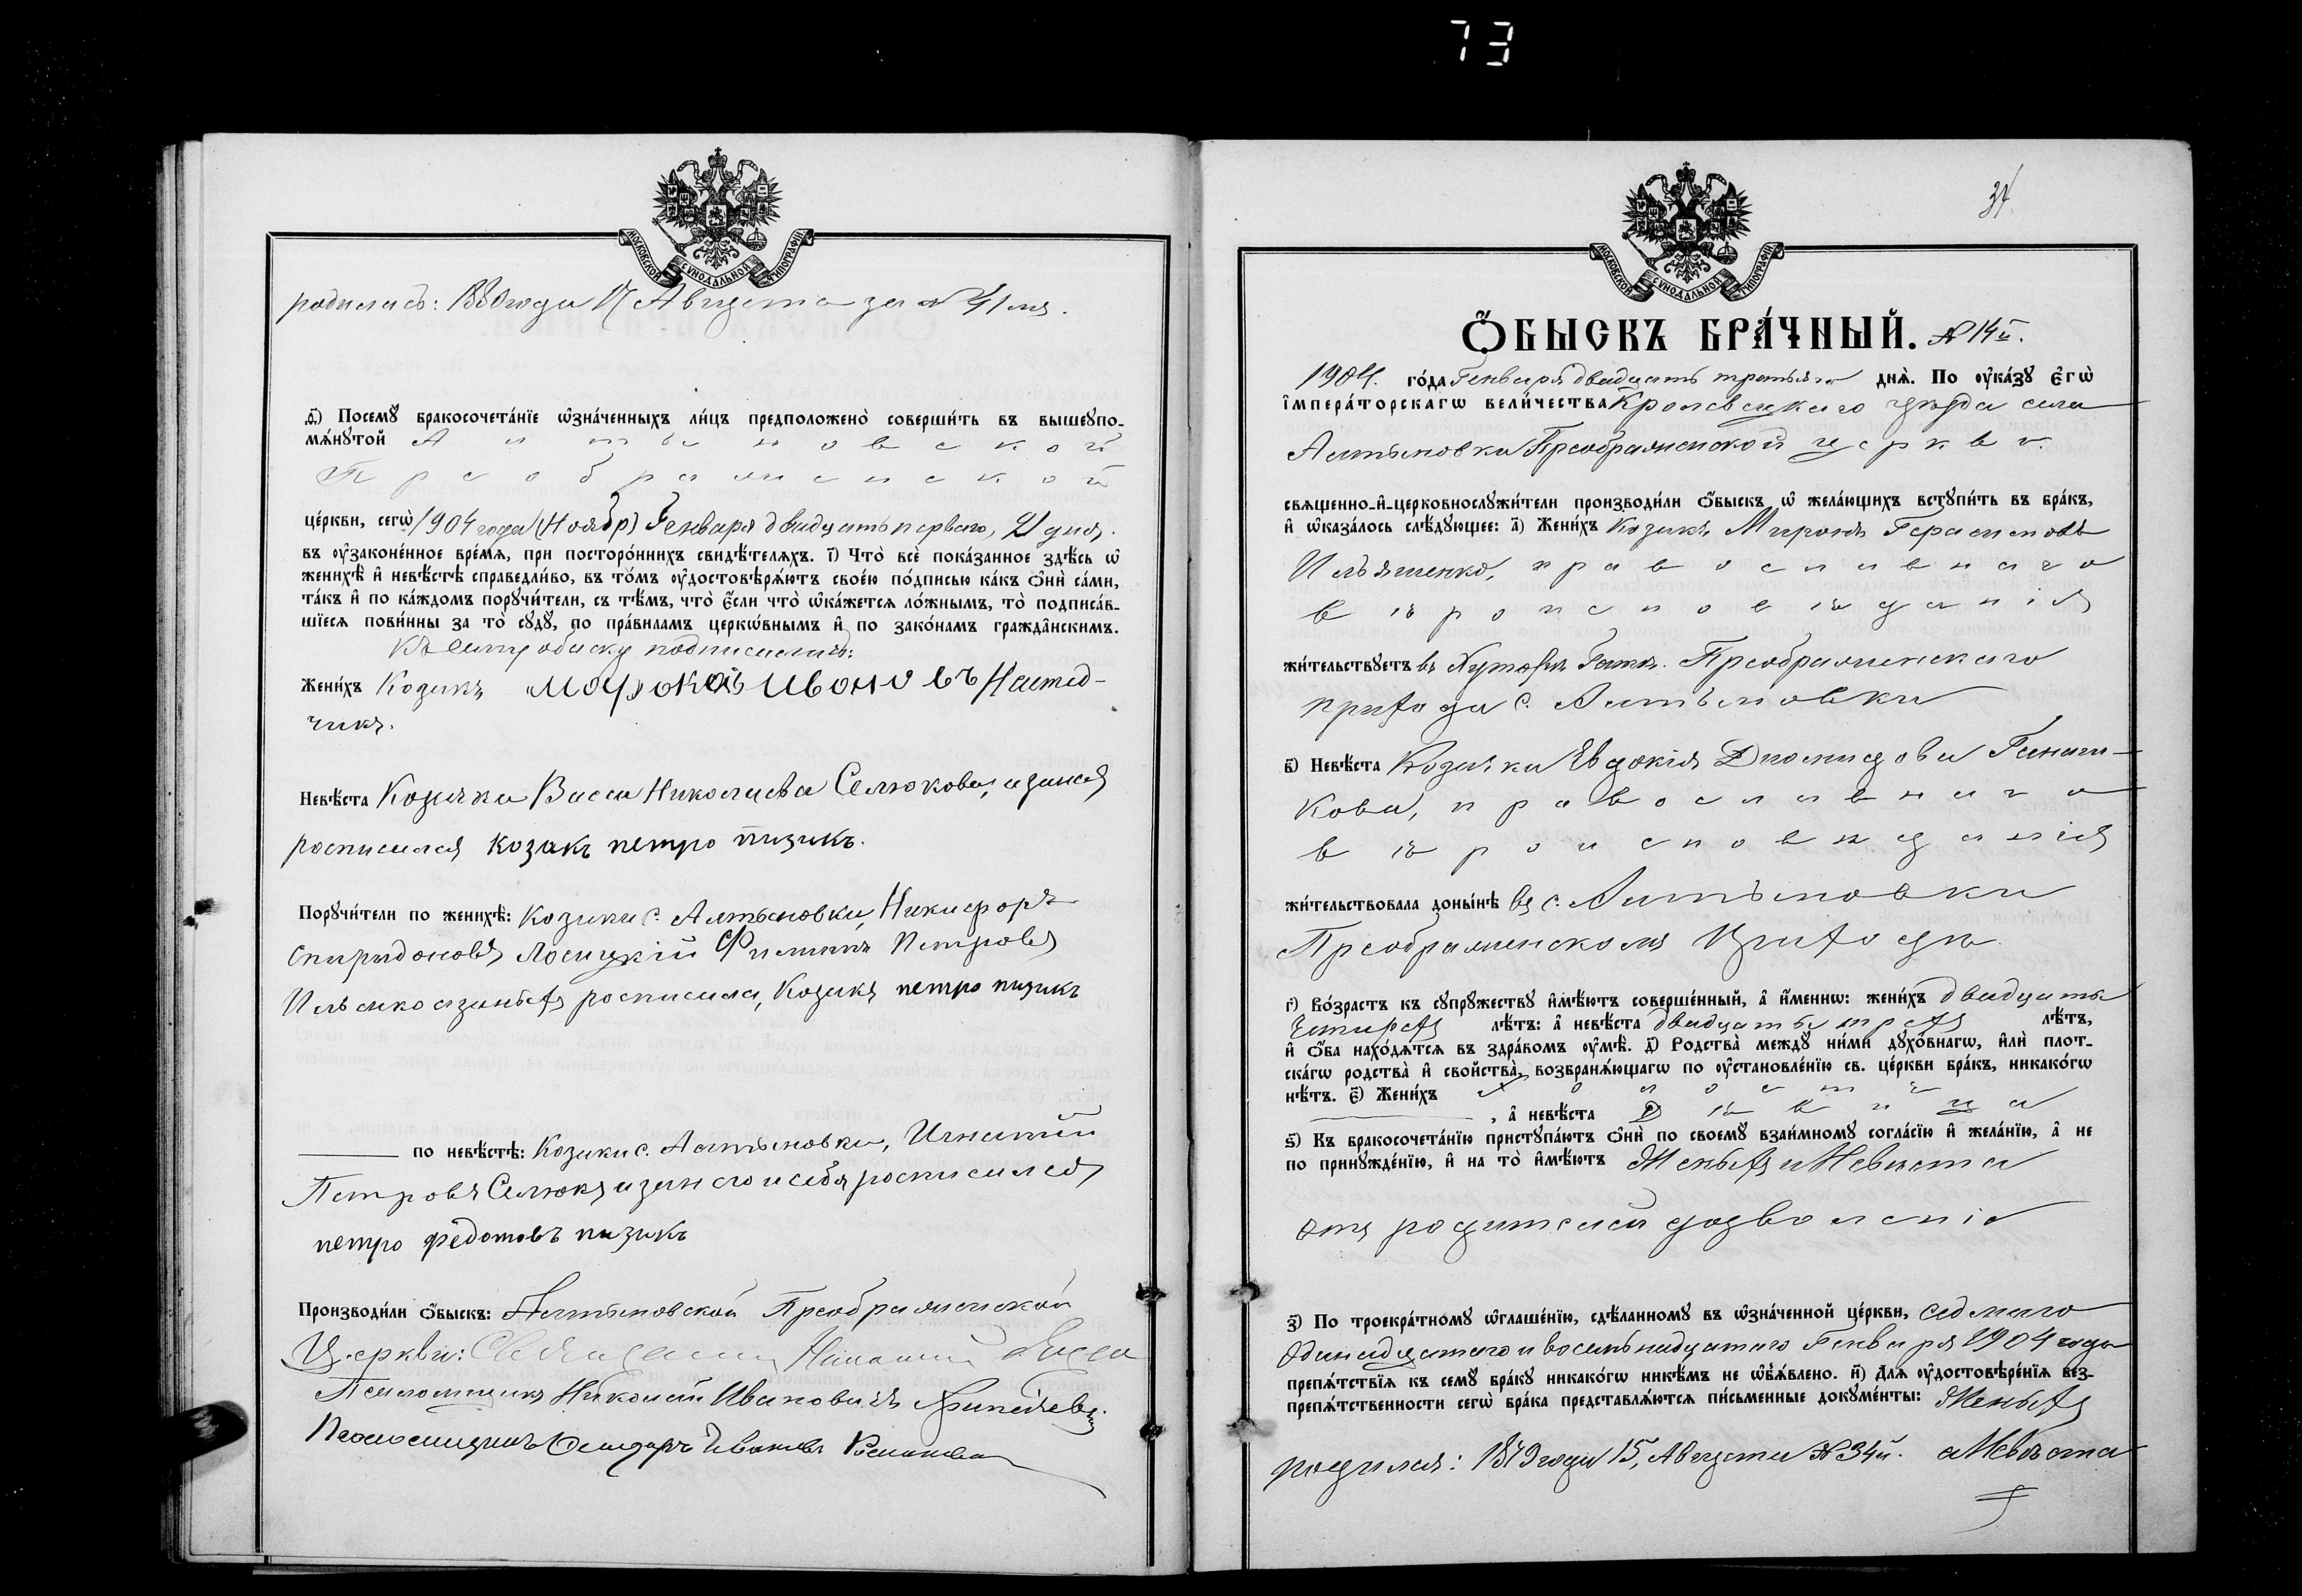 73
МОСКОВСКОЙ СУНОДАЛЬНОЙ ТИПОГРАФІИ
родилась: года 17 Августа за № 41 мъ.
д҃) Посемꙋ бракосочета́нїе ѡ҆зна́ченныхъ ли́цъ предположено̀ соверши́ть въ вышеꙋпо-
мѧ́нꙋтой Алтыновской
Преображенской
це́ркви, сегѡ̀ 1904 года (Ноябр) Генваря двадцать перваго, 21 дня.
въ ᲂу҆законе́нное вре́мѧ, при посторо́ннихъ свидѣ́телѧхъ. і҃) Что̀ всѐ пока́занное здѣ́сь ѡ҆
женихѣ̀ и҆ невѣ́стѣ справедли́во, въ то́мъ ᲂу҆достовѣрѧ́ютъ свое́ю по́дписью ка́къ ѻ҆нѝ са́ми,
та́къ и҆ по ка́ждомъ порꙋчи́тели, съ тѣ́мъ, что̀ є҆́сли что̀ ѡ҆ка́жетсѧ ло́жнымъ, то̀ подписа́в-
шїесѧ пови́нны за то̀ сꙋдꙋ̀, по пра́виламъ церкѡ́внымъ и҆ по зако́намъ гражда̑нскимъ.
Къ сему обыску подписались:
Жени́хъ Козакъ Ивоновъ
чикъ.
Невѣ́ста Козачка Васса Николаева Селюкова, а занея
росписался козакъ петро пизикъ.
Порꙋчи́тели по женихѣ̀: Козаки с. Алтыновки, Никифоръ
Спиридоновъ Лосицкій Филипъ Петровъ
росписался, Козакъ петро пизикъ
по невѣ́стѣ: Козаки с. Алтыновки, Игнатій
Петровъ Селюкъ а за него и себя росписался
петро федотовъ пизикъ
Производи́ли ѻ҆́быскъ: Алтыновской Преображенской
Церкви:
Псаломщикъ Николай Ивановичъ
Псаломщикъ Ивановъ
34
Ѻ҆́БЫСКЪ БРА́ЧНЫЙ. № 14й.
1904. го́да Генваря двадцать третьяго днѧ̀. По ᲂу҆ка́зꙋ є҆гѡ̀
і҆мпера́торскагѡ вели́чества Кролевецкаго уѣзда села
Алтыновки Преображенской церкви
свѧщенно-и҆-церковнослꙋжи́тели производи́ли ѻ҆́быскъ ѡ҆ жела́ющихъ встꙋпи́ть въ бра́къ,
и҆ ѡ҆каза́лось слѣ́дꙋющее: а҃) Жени́хъ Козакъ Миронъ Герасимовъ
Ильяшенко, православнаго
вѣроисповѣданія
жи́тельствꙋетъ въ Хуторѣ Преображенскаго
прихода с. Алтыновки
в҃) Невѣ́ста Козачка Евдокія Диомидова
кова, православнаго
вѣроисповѣданія
жи́тельствовала доны́нѣ въ с. Алтыновки
Преображенскомъ Приходѣ
г҃) Во́зрастъ къ сꙋпрꙋ́жествꙋ и҆мѣ́ютъ соверше́нный, а҆ и҆́меннѡ: жени́хъ двадцать
четырехъ лѣ́тъ: а҆ невѣ́ста двадцать трехъ лѣ́тъ,
и҆ ѻ҆́ба нахо́дѧтсѧ въ здра́вомъ ᲂу҆мѣ̀. д҃) Родства̀ междꙋ̀ ни́ми дꙋхо́внагѡ, и҆лѝ плот-
ска́гѡ родства̀ и҆ свойства̀, возбранѧ́ющагѡ по ᲂу҆становле́нїю св. це́ркви бра́къ, никако́гѡ
нѣ́тъ. є҃) Жени́хъ холостъ
, а҆ невѣ́ста Дѣвица
ѕ҃) Къ бракосочета́нїю пристꙋпа́ютъ ѻ҆нѝ по своемꙋ̀ взаи́мномꙋ согла́сїю и҆ жела́нїю, а҆ не
по принꙋжде́нїю, и҆ на то̀ и҆мѣ́ютъ Женыхъ и Невѣста
отъ родителей дозволеніе
з҃) По троекра́тномꙋ ѡ҆глаше́нїю, сдѣ́ланномꙋ въ ѡ҆зна́ченной це́ркви, седмаго
одинадцатаго и восемьнадцатаго Генваря 1904 года
препѧ́тствїѧ къ семꙋ̀ бра́кꙋ никако́гѡ никѣ́мъ не ѡ҆б̾ѧ́влено. и҃) Длѧ̀ ᲂу҆достовѣре́нїѧ без-
препѧ́тственности сегѡ̀ бра́ка представлѧ́ютсѧ пи́сьменные докꙋме́нты: Женыхъ
родился: 1879 года 15, Августа № 34й. а Невѣста